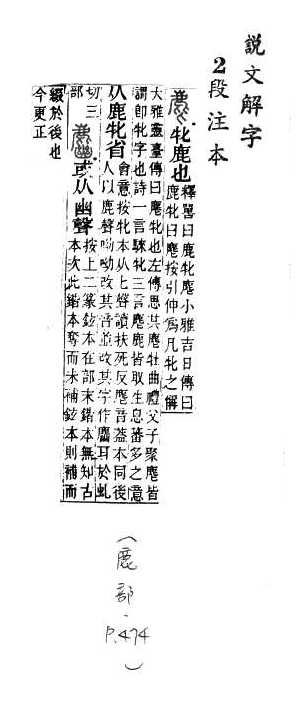 說文解字
2段注本
麀 牝鹿也 釋嘼曰鹿牝麀小雅吉日傳曰
鹿牝曰麀按引伸爲凡牝之偁
大雅靈臺傳曰麀牝也左傳思其麀牡曲禮父子聚麀皆
謂即牝字也詩一言騋牝三言麀鹿皆取生息蕃多之意
从鹿牝省 會意按牝本从匕聲讀扶死反麀音葢本同後
人以鹿聲呦呦改其音並改其字作𪋻耳於虯
切三
部
𪋻 或从幽聲 按上二篆鉉本在部末鍇本無知古
本次此鍇本奪而未補鉉本則補而
綴於後也
今更正
(鹿部.P.474)